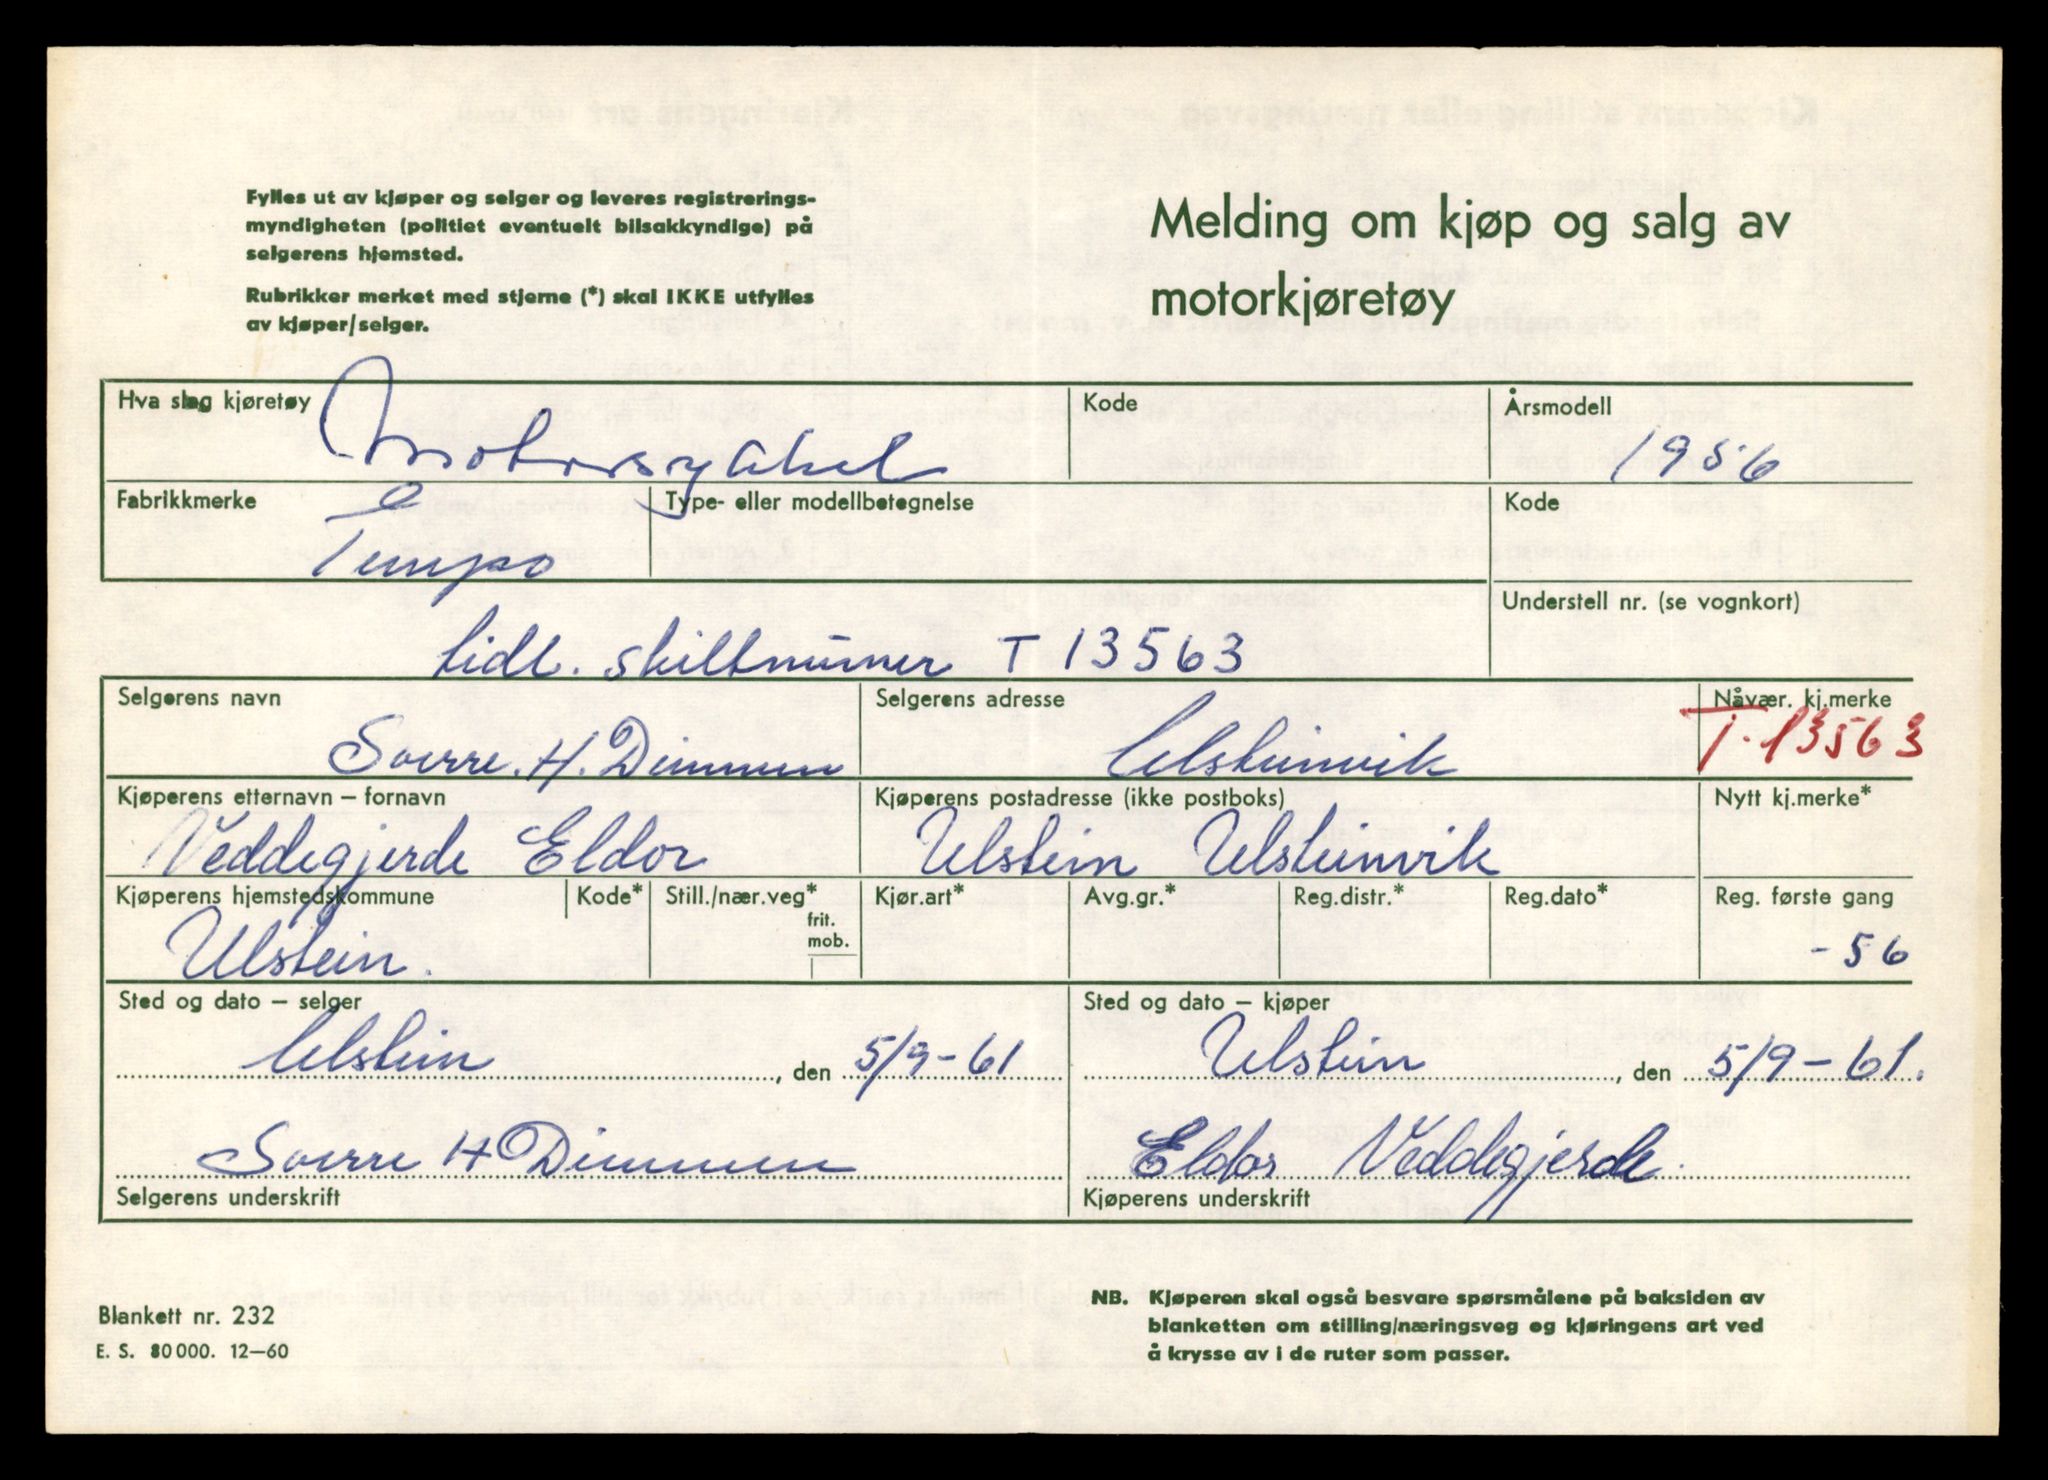 Fylles ut av kjøper og selger og leveres registrerings-
myndigheten (politiet eventuelt bilsakkyndige) på
selgerens hjemsted.
Rubrikker merket med stjerne (*) skal IKKE utfylles
av kjøper/selger.
Melding om kjøp og salg av
motorkjøretøy
Hva slag kjøretøy
Motorsykkel
Kode
Årsmodell
1956
Fabrikkmerke
Tempo
Type- eller modellbetegnelse
Kode
Understell nr. (se vognkort)
tidl. skiltnummer T 13563
Selgerens navn
Sverre. H. Dimmen
Selgerens adresse
Ulsteinvik
Nåvær. kj.merke
T. 13563
Kjøperens etternavn – fornavn
Veddegjerde Eldor
Kjøperens postadresse (ikke postboks)
Ulstein Ulsteinvik
Nytt kj.merke*
Kjøperens hjemstedskommune
Ulstein.
Kode*
Still./nær.veg*
frit.
mob.
Kjør.art*
Avg.gr.*
Reg.distr.*
Reg.dato*
Reg. første gang
- 56
Sted og dato – selger
Ulstein, den 5/9-61
Sted og dato – kjøper
Ulstein, den 5/9-61.
Sverre H Dimmen
Selgerens underskrift
Eldor Veddegjerde.
Kjøperens underskrift
Blankett nr. 232
E. S. 80 000. 12–60
NB. Kjøperen skal også besvare spørsmålene på baksiden av
blanketten om stilling/næringsveg og kjøringens art ved
å krysse av i de ruter som passer.